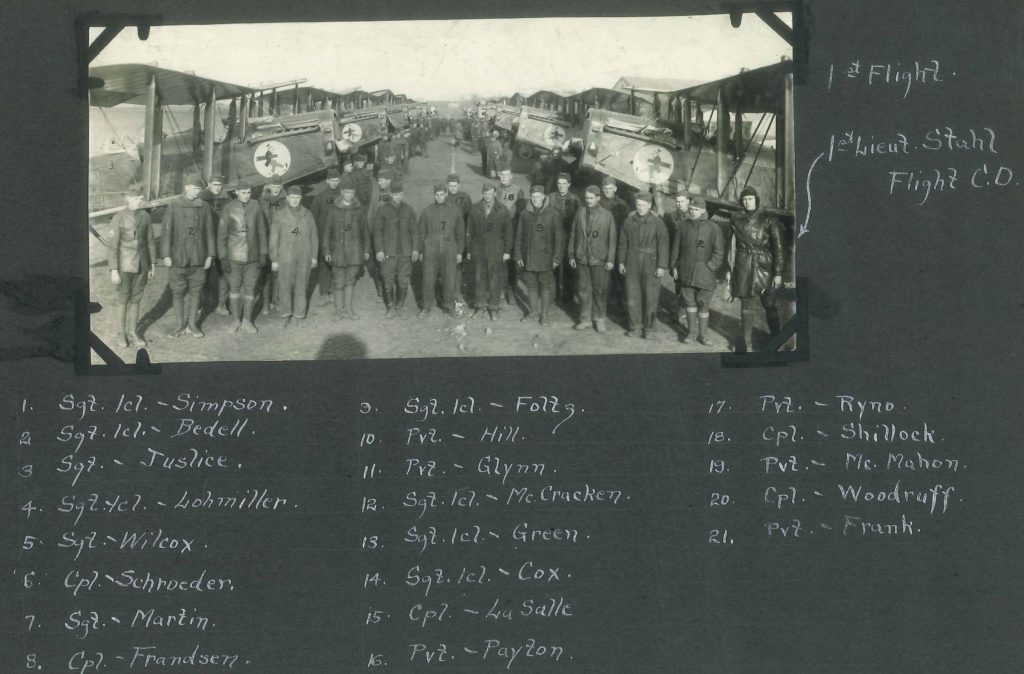 1st Flight.
1st Lieut. Stahl
Flight C.D.
1. Sgt. 1cl. - Simpson.
2 Sgt. 1cl. - Bedell.
3 Sgt. - Justice.
4. Sgt. 1cl. - Lohmiller.
5 Sgt. - Wilcox.
6 Cpl. - Schroeder.
7. Sgt. - Martin.
8. Cpl. - Frandsen.
9. Sgt. 1cl. - Foltg.
10 Pvt. - Hill.
11. Pvt. - Glynn.
12. Sgt. 1cl. - Mc.Cracken.
13. Sgt. 1cl. - Green.
14. Sgt. 1cl. - Cox.
15 Cpl. - LaSalle
16. Pvt. - Payton.
17. Pvt. - Ryno.
18. Cpl. - Shillock.
19. Pvt. - Mc.Mahon.
20 Cpl. - Woodruff.
21. Pvt. - Frank.